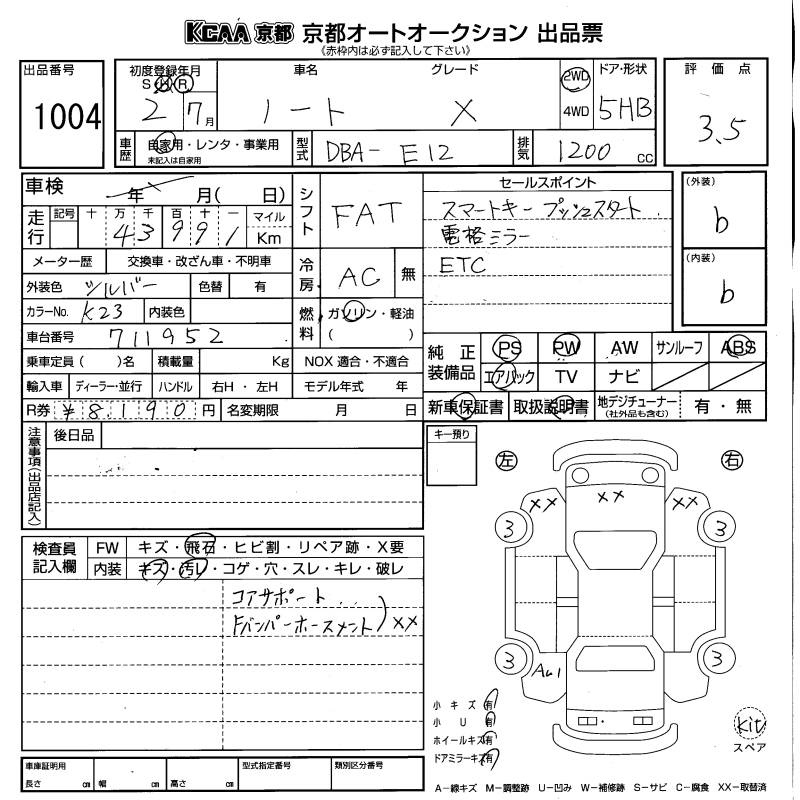 KCAA 京都 京都オートオークション 出品票
《赤枠内は必ず記入して下さい》
出品番号 初度登録年月 車名 グレード 2WD ドア・形状 評価点
S H R
1004 2 7月 ノート X 4WD 5HB 3.5
車歴 自家用・レンタ・事業用 型式 DBA- E12 排気 1200 cc
未記入は自家用
車検 年 月( 日) シフト FAT セールスポイント (外装)
走行 記号 十 万 千 百 十 一 マイル スマートキー プッシュスタート b
4 3 9 9 1 Km 電格ミラー
メーター歴 交換車・改ざん車・不明車 冷房 AC 無 ETC (内装)
外装色 シルバー 色替 有 b
カラーNo. K23 内装色 燃料 ガソリン・軽油
車台番号 711952 ( )
乗車定員( )名 積載量 Kg NOX 適合・不適合 純正装備品 PS PW AW サンルーフ ABS
輸入車 ディーラー・並行 ハンドル 右H・左H モデル年式 年 エアバック TV ナビ
R券 ¥8,190円 名変期限 月 日 新車保証書 取扱説明書 地デジチューナー 有・無
(社外品も含む)
注意事項(出品店記入) 後日品 キー預り
左 右
XX XX XX
3 3
検査員記入欄 FW キズ・飛石・ヒビ割・リペア跡・X要
内装 キズ・汚レ・コゲ・穴・スレ・キレ・破レ
コアサポート
Fバンパーホースメント)XX
3 3
A41
小キズ 有
小U 有
ホイールキズ 有
ドアミラーキズ 有
kit
スペア
車庫証明用 型式指定番号 類別区分番号
長さ cm 幅 cm 高さ cm
A-線キズ M-調整跡 U-凹み W-補修跡 S-サビ C-腐食 XX-取替済